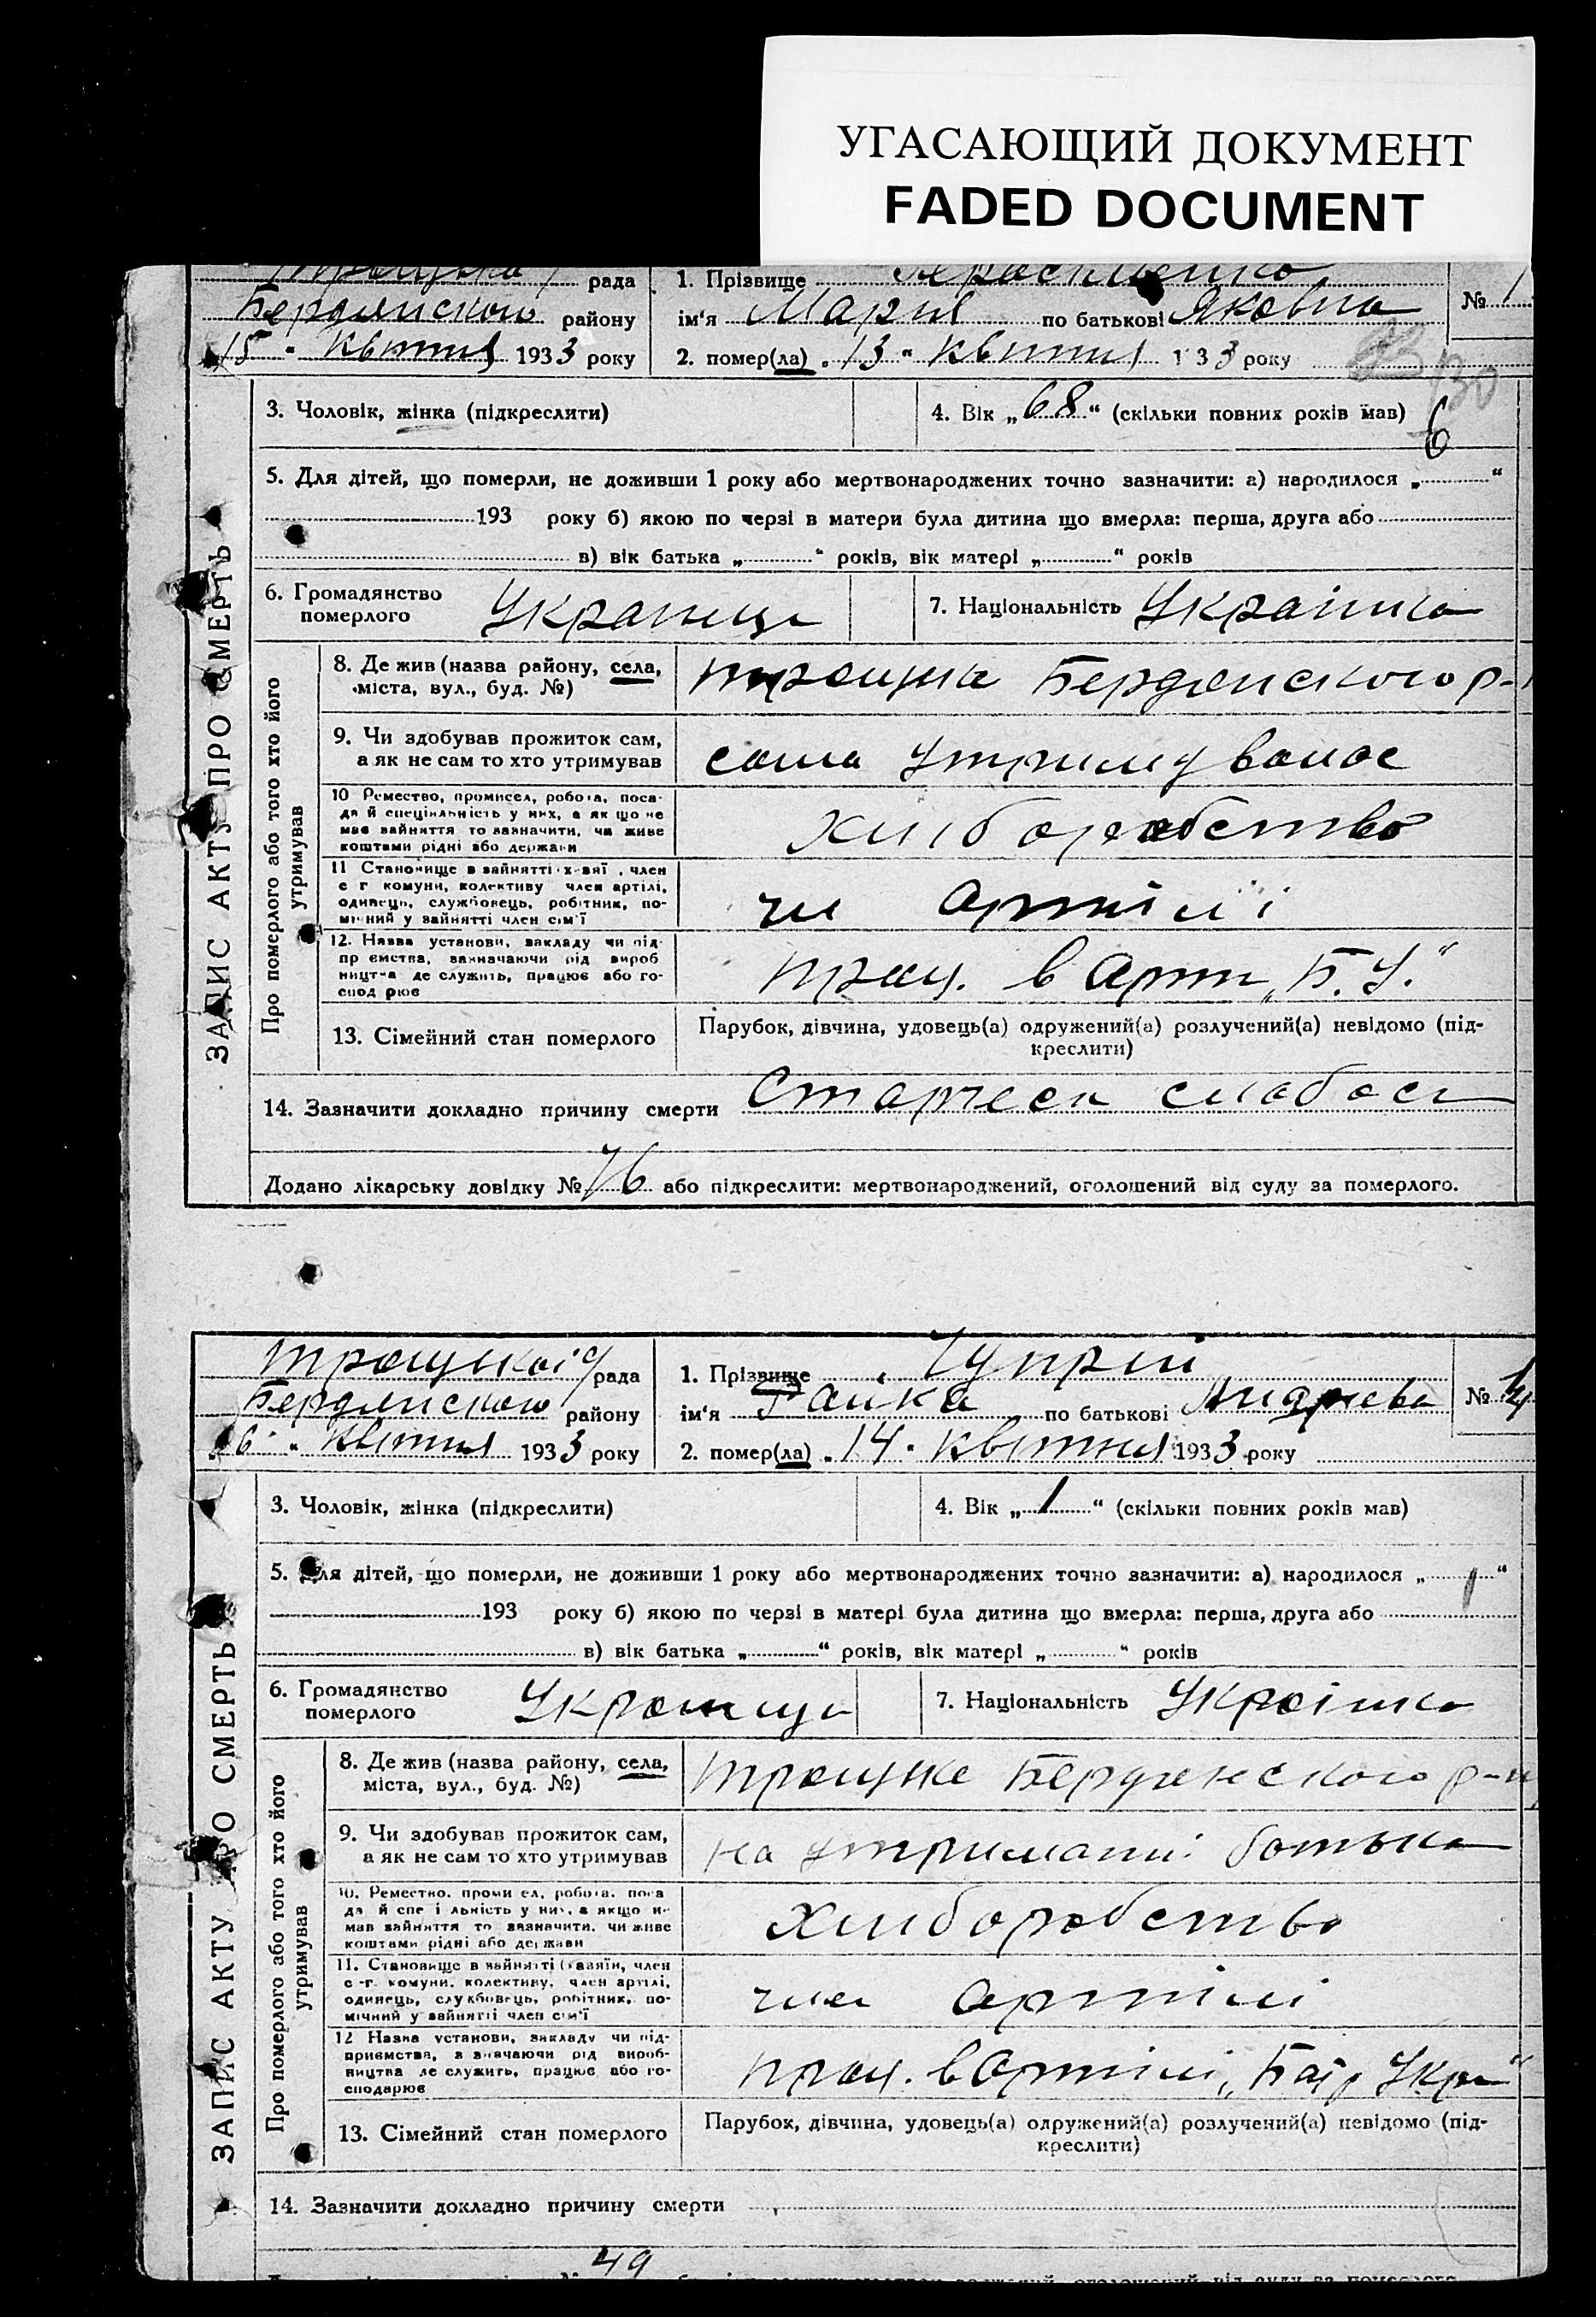 УГАСАЮЩИЙ ДОКУМЕНТ
FADED DOCUMENT
рада
Бердянского району
15 " Квітня 1933 року
1. Прізвище
ім'я Марія по батькові Яковна
2. помер(ла) " 13 " Квітня 1933 року
№
3. Чоловік, жінка (підкреслити)
4. Вік „ 68 “ (скільки повних років мав)
6
5. Для дітей, що померли, не доживши 1 року або мертвонароджених точно зазначити: а) народилося „ “
193 року б) якою по черзі в матери була дитина що вмерла: перша, друга або
в) вік батька „ “ років, вік матері „ “ років
6. Громадянство
померлого
7. Національність Украінка
ЗАПИС АКТУ ПРО СМЕРТЬ
Про померлого або того хто його
утримував
8. Де жив (назва району, села,
міста, вул., буд. №)
Троцьке Бердянского р-
9. Чи здобував прожиток сам,
а як не сам то хто утримував
сама
10 Ремество, промисел, робота, поса-
да й спеціяльність у них, а як що не
має зайняття то зазначити, чи живе
коштами рідні або держави
Хліборобство
11 Становище в зайнятті член
с г комуни, колективу член артілі,
одинець, службовець, робітник, по-
мічний у зайнятті член сім'ї
чл Артілі
12. Назва установи, закладу чи під-
пр ємства, зазначаючи рід вироб
ництва де служить, працює або го-
спод рює
прац. в Арт „Б. У.“
13. Сімейний стан померлого
Парубок, дівчина, удовець(а) одружений(а) розлучений(а) невідомо (під-
креслити)
14. Зазначити докладно причину смерти Старческ слабост
Додано лікарську довідку № 76 або підкреслити: мертвонароджений, оголошений від суду за померлого.
Троцької рада
Бердянского району
" Квітня 1933 року
1. Прізвище Чуприй
ім'я Райка по батькові Андреева
2. помер(ла) " 14 " Квітня 1933 року
№ 14
3. Чоловік, жінка (підкреслити)
4. Вік „ 1 “ (скільки повних років мав)
5. Для дітей, що померли, не доживши 1 року або мертвонароджених точно зазначити: а) народилося „ “
193 року б) якою по черзі в матері була дитина що вмерла: перша, друга або
в) вік батька „ “ років, вік матері „ “ років
6. Громадянство
померлого
7. Національність Украінка
ЗАПИС АКТУ ПРО СМЕРТЬ
Про померлого або того хто його
утримував
8. Де жив (назва району, села,
міста, вул., буд. №)
Троцьке Бердянского р-н
9. Чи здобував прожиток сам,
а як не сам то хто утримував
на утриманні батька
10. Ремество, промисел, робота, поса
да й спеціяльність у них, а якщо не
мав зайняття то зазначити, чи живе
коштами рідні або держави
Хліборобство
11. Становище в зайнятті (хазяїн, член
с-г. комуни, колективу, член артілі,
одинець, службовець, робітник, по-
мічний у зайнятті член сім'ї
член Артілі
12 Назва установи, закладу чи під-
приємства, зазначаючи рід вироб-
ництва де служить, працює або го-
сподарює
прац. в Артілі „
13. Сімейний стан померлого
Парубок, дівчина, удовець(а) одружений(а) розлучений(а) невідомо (під-
креслити)
14. Зазначити докладно причину смерти
49